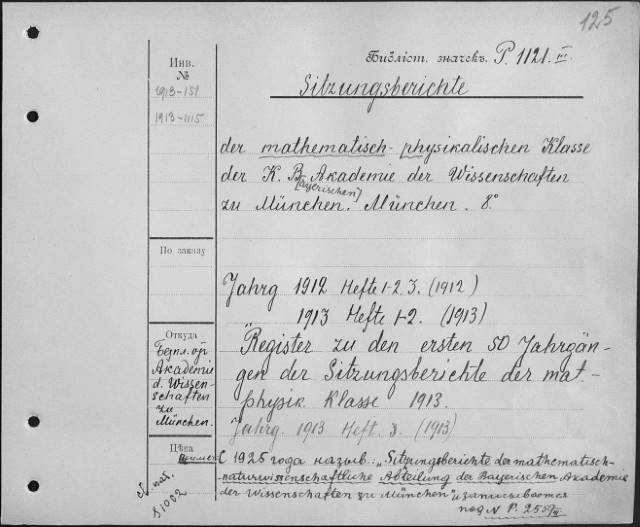 125
Инв.
№
1913-151
1913-1115
Библіот. значекъ P. 1121. III.
Sitzungsberichte
der mathematisch-physikalischen Klasse
der K. B. Akademie der Wissenschaften
[Bayerischen]
zu München. München. 8°
По заказу
Jahrg 1912 Hefte 1-2 3. (1912)
1913 Hefte 1-2. (1913)
"Register zu den ersten 50 Jahrgän-
gen der Sitzungsberichte der mat-
physik. Klasse 1913.
Jahrg. 1913 Heft. 3. (1913)
Откуда
Akademie
d. Wissen-
schaften
zu
München.
Цѣна
С 1925 года назыв.: „Sitzungsberichte der mathematisch-
naturwissenschaftliche Abteilung der Bayerischen Akademie
der Wissenschaften zu München" и записывается
под N P. 2559/III